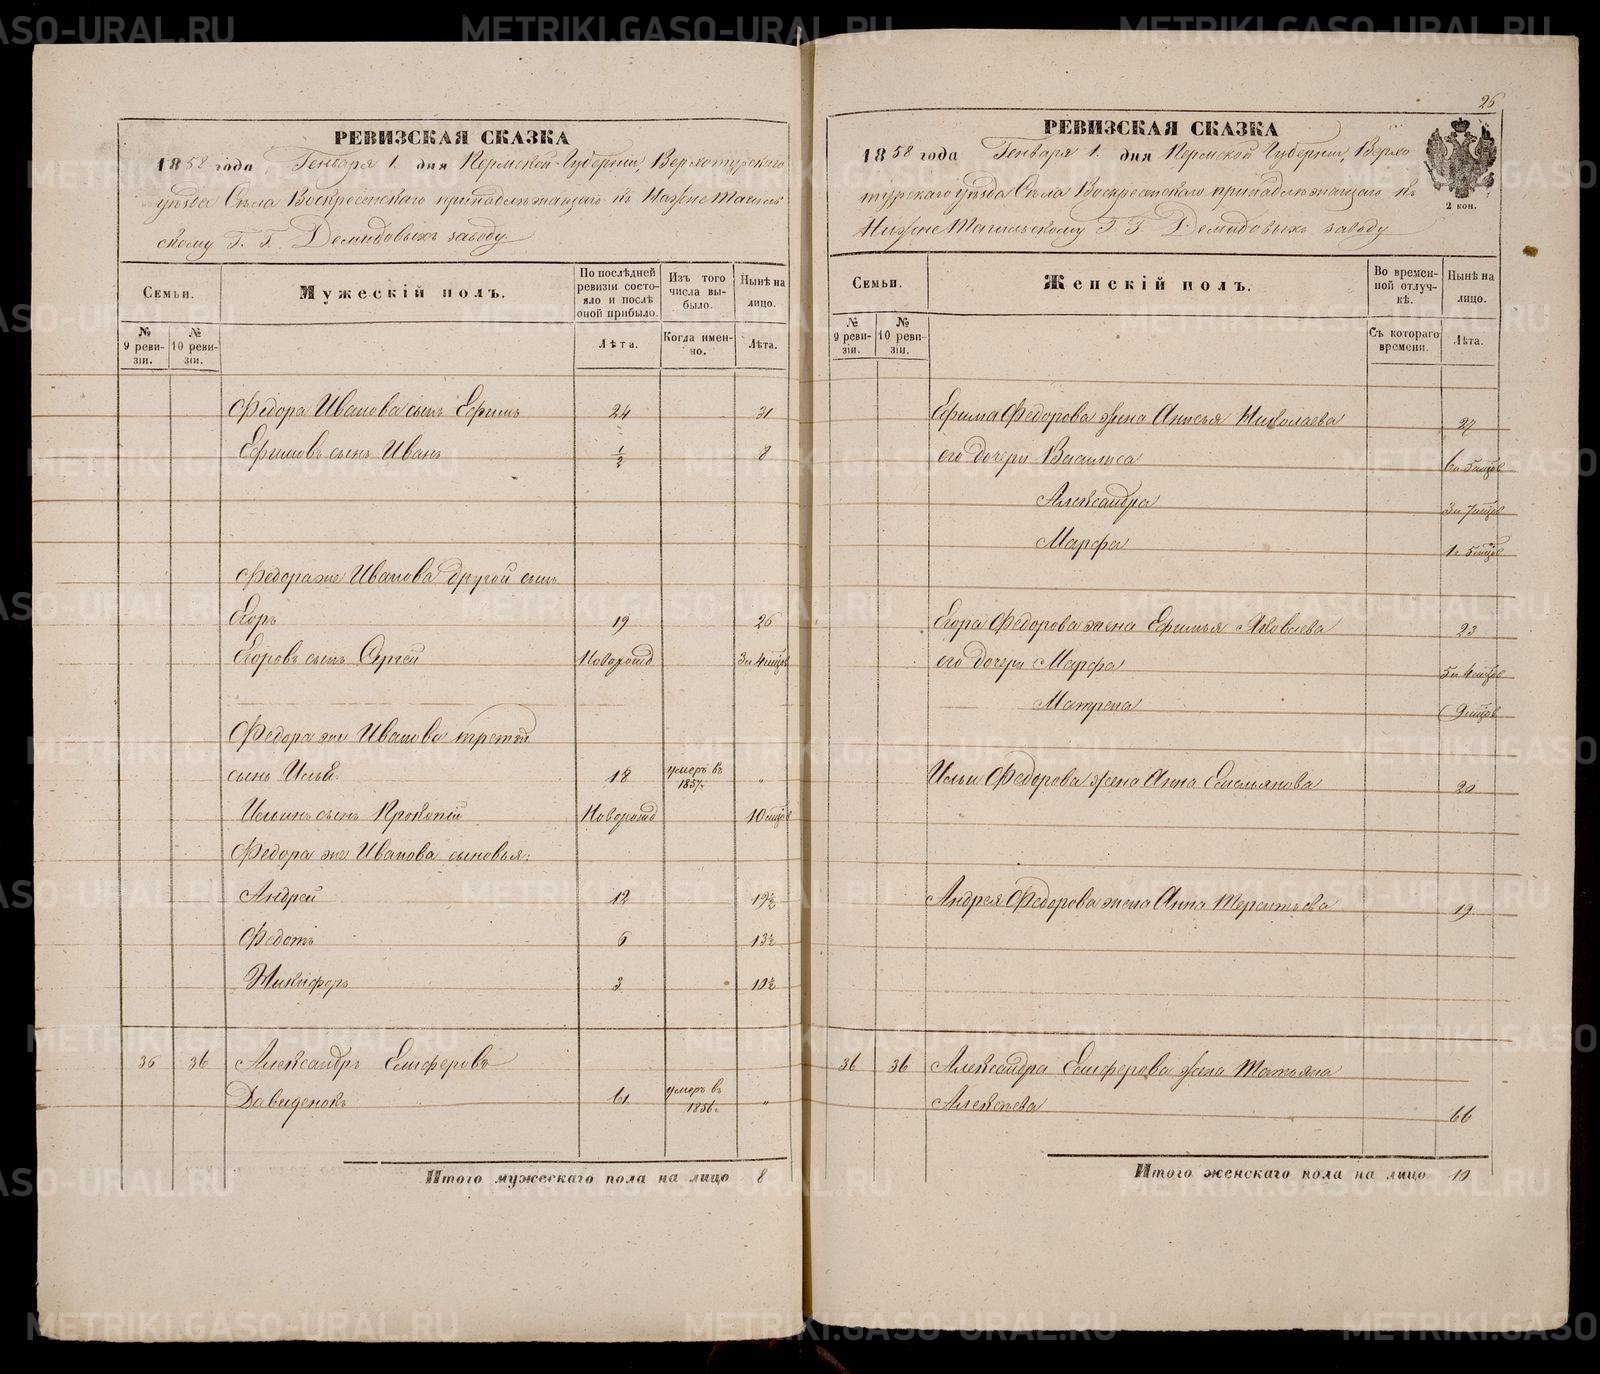 26
РЕВИЗСКАЯ СКАЗКА
1858 года Генваря 1. дня Пермской Губернии, Верхотурскаго
уѣзда Села Воскресенскаго принадлежащаго къ Нижне Тагиль
скому Г. Г. Демидовыхъ заводу
Семьи.
Мужескій полъ.
По послѣдней ревизіи состояло и послѣ оной прибыло.
Изъ того числа выбыло.
Нынѣ на лицо.
№ 9 ревизіи.
№ 10 ревизіи.
Лѣта.
Когда именно.
Лѣта.
Федора Иванова сынъ Ефимъ 24 31
Ефимовъ сынъ Иванъ 1/2 8
Федора же Иванова другой сынъ
Егоръ 19 26
Егоровъ сынъ Сергей Новорожд 3 и 4 мѣсцов
Федора же Иванова третей
сынъ Илья 18 умеръ въ 1857 г. "
Ильинъ сынъ Прокопій Новорожд 10 мѣсцов
Федора же Иванова сыновья:
Андрей 12 19½
Федотъ 6 13½
Никифоръ 3 10½
36 36 Александръ Елиферовъ
Давиденокъ 61 умеръ въ 1856 г. "
Итого мужескаго пола на лицо 8
РЕВИЗСКАЯ СКАЗКА
1858 года Генваря 1. дня Пермской Губернии, Верхо
турскаго уѣзда Села Воскресенскаго принадлежащаго къ
Нижне Тагильскому Г. Г. Демидовыхъ заводу
2 коп.
Семьи.
Женскій полъ.
Во временной отлучкѣ.
Нынѣ на лицо.
№ 9 ревизіи.
№ 10 ревизіи.
Съ котораго времени.
Лѣта.
Ефима Федорова жена Анисья Николаева 27
его дочери Василиса 6 и 5 мѣсцов
Александра 3 и 7 мѣсцов
Марфа 1 и 5 мѣсцов
Егора Федорова жена Ефимья Яковлева 23
его дочери Марфа 5 и 4 мѣсцов
Матрена 9 мѣсцов
Ильи Федорова жена Анна Емельянова 20
Андрея Федорова жена Анна Терентьева 19
36 36 Александра Елиферова жена Татьяна
Алексѣева 66
Итого женскаго пола на лицо 10
METRIKI.GASO-URAL.RU